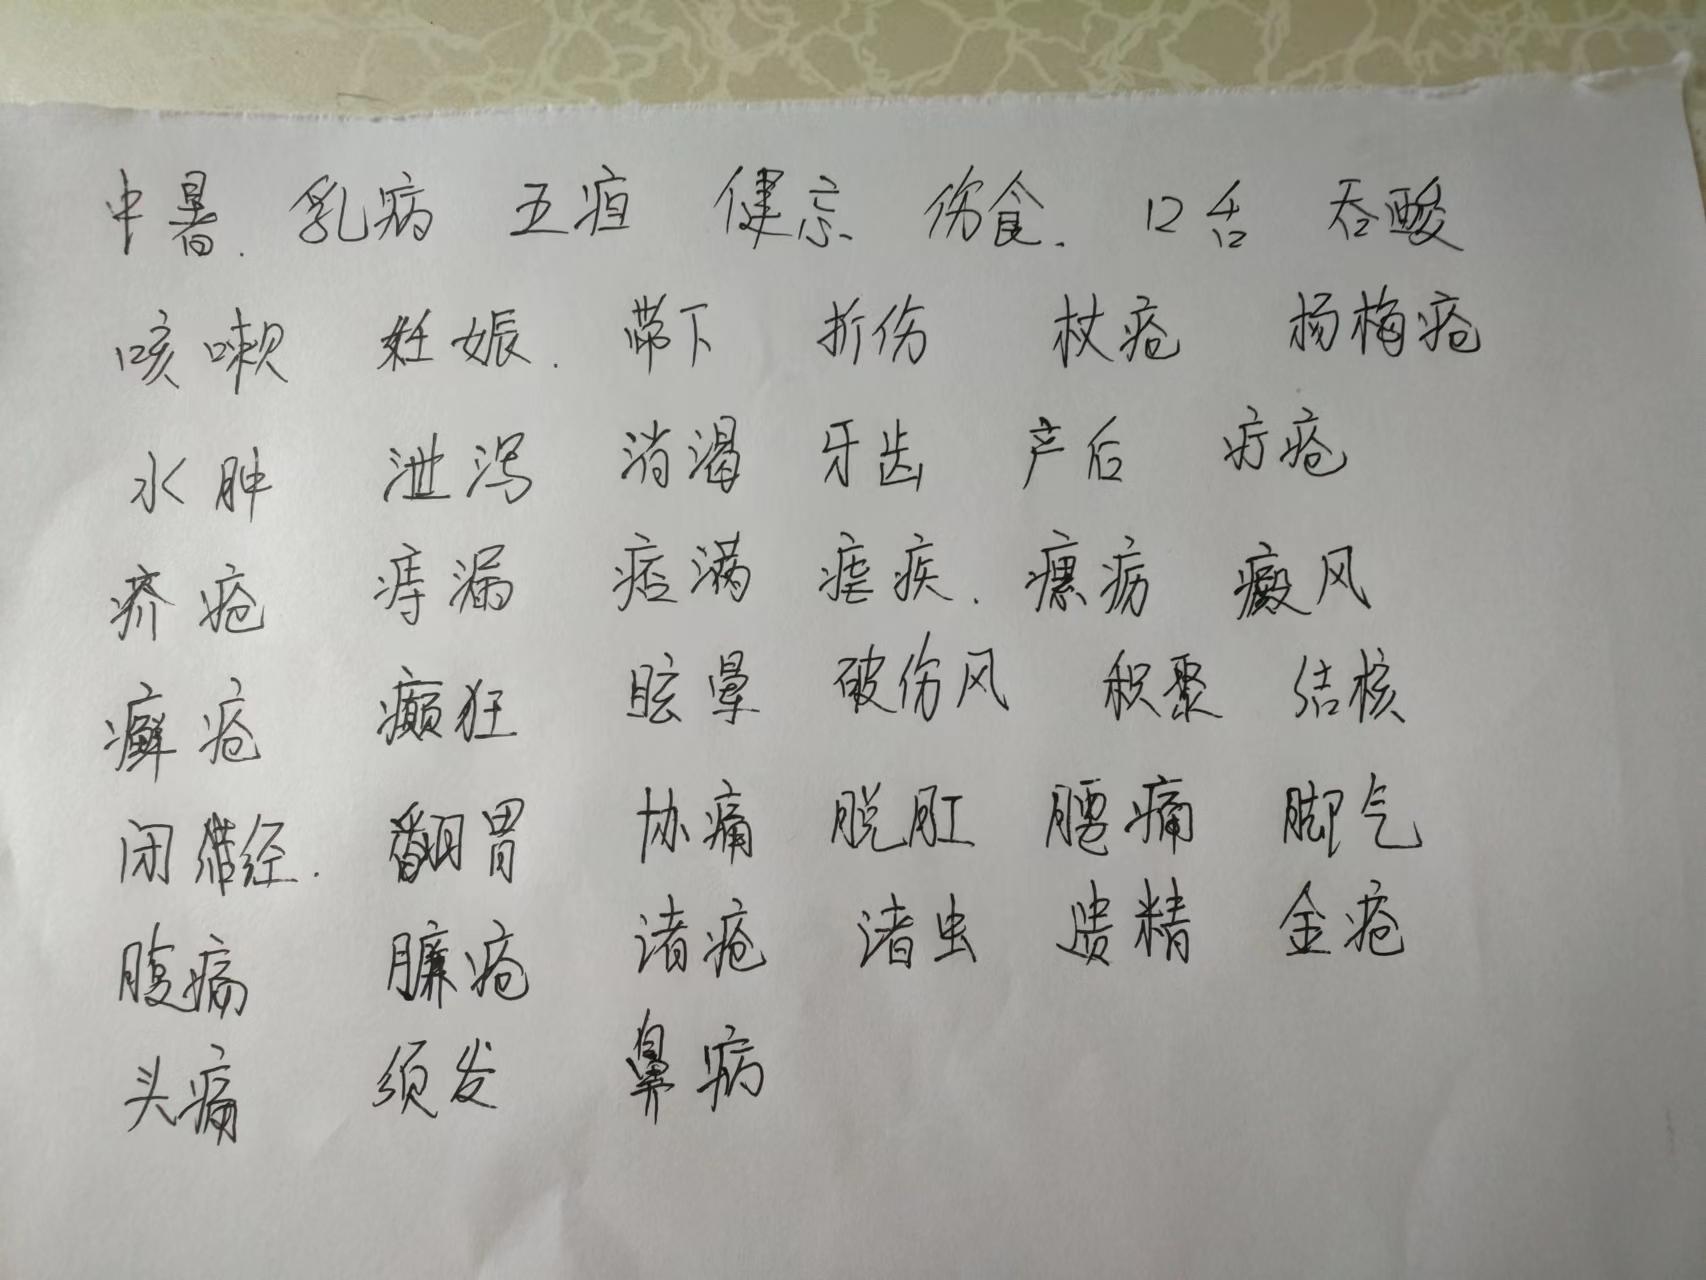 中暑. 乳病 五疸 健忘 伤食. 口舌 吞酸
咳嗽 妊娠. 带下 折伤 杖疮 杨梅疮
水肿 泄泻 消渴 牙齿 产后 疔疮
疥疮 痔漏 痞满 疟疾. 瘰疬 癜风
癣疮 癫狂 眩晕 破伤风 积聚 结核
闭经. 翻胃 协痛 脱肛 腰痛 脚气
腹痛 臁疮 诸疮 诸虫 遗精 金疮
头痛 须发 鼻病